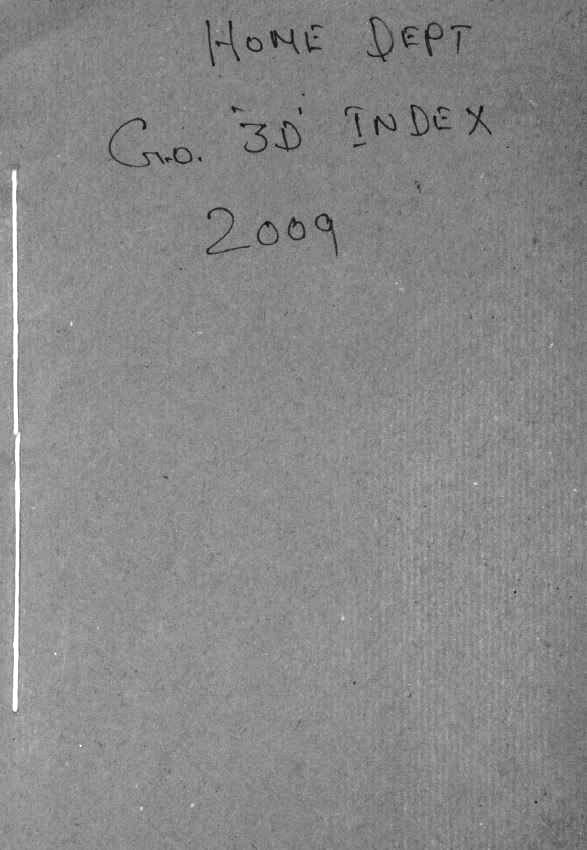 HOME DEPT
G.O. '3D' INDEX
2009